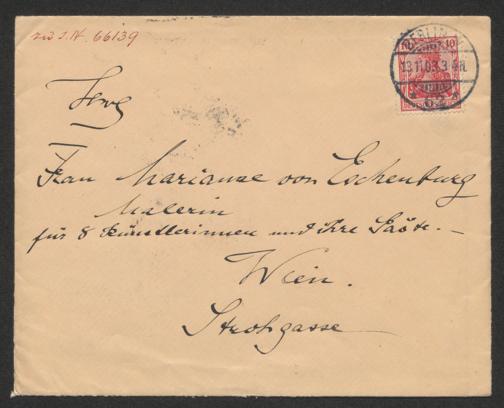 zu I.N. 66139
BERLIN W.
13.11.03. 3-4N.
* 62 *
10 10
Frau Marianne von Eschenburg
Malerin
für 8 Künstlerinnen und ihre Gäste. –
Wien.
Strohgasse